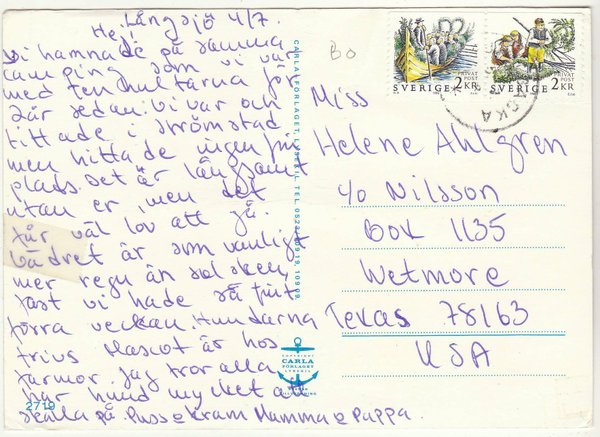 Långsjö 4/7.
Hej!
Vi hamnade på samma
camping som vi var
med tenthultarna för
år sedan. Vi var och
tittade i Strömstad
men hittade ingen fin
plats. Det är långsamt
utan er men det
får väl lov att gå.
Vädret är som vanligt
mer regn än solsken,
fast vi hade så fint
förra veckan. Hundarna
trivs Mascot är hos
farmor. Jag tror alla
har hund mycket att
skälla på. Puss o Kram Mamma o Pappa.
2719
CARLA FÖRLAGET, LYSEKIL, TEL 0523
COPYRIGHT
CARLA
FÖRLAGET
LYSEKIL
Bo
SVERIGE 2 KR
PRIVAT
POST
SVERIGE 2 KR
PRIVAT
POST
Miss
Helene Ahlgren
c/o Nilsson
Box 1135
Wetmore
Texas 78163
USA